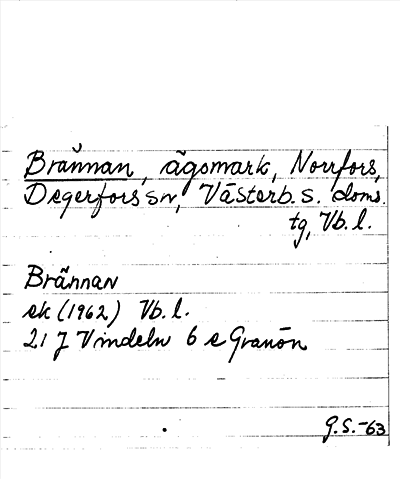 Brännan, ägomark, Norrfors,
Degerfors sn, Västerb. s. doms.
tg, Vb. l.
Brännan
ek (1962) Vb. l.
21 J Vindeln 6 e Granön
G.S.-63